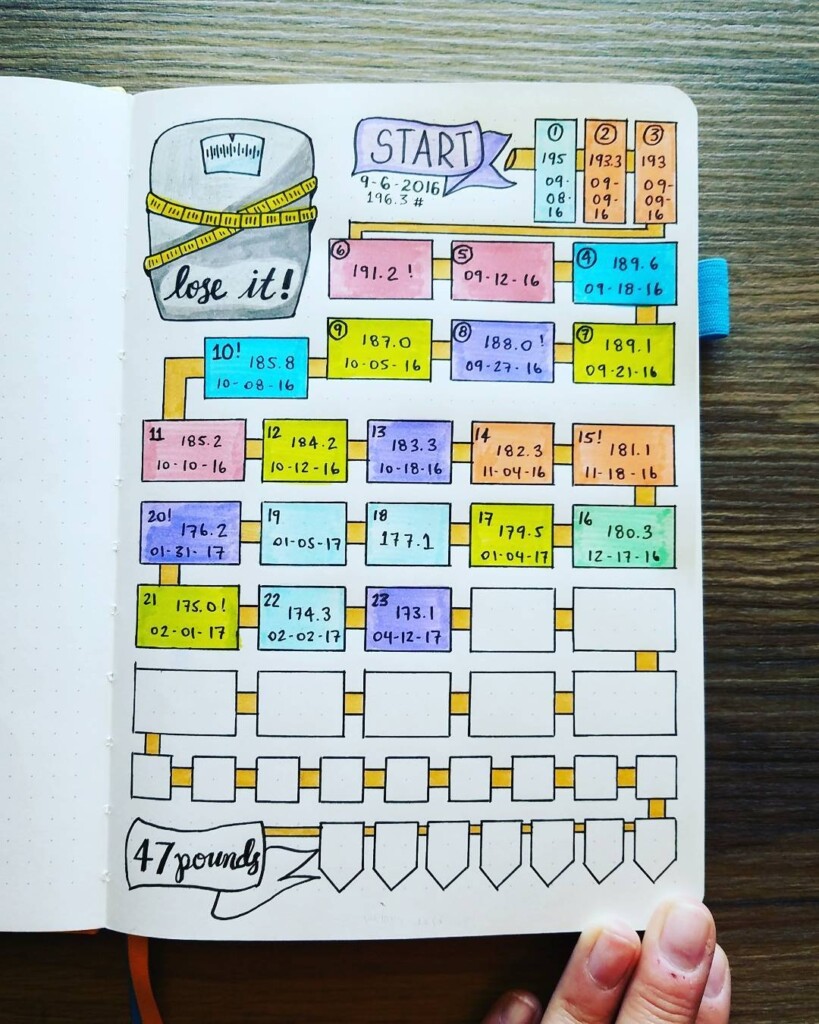 START
9-6-2016
196.3 #
1
195
09-
08-
16
2
193.3
09-
09-
16
3
193
09-
09-
16
lose it!
6
191.2 !
5
09-12-16
4
189.6
09-18-16
10!
185.8
10-08-16
9
187.0
10-05-16
8
188.0!
09-27-16
7
189.1
09-21-16
11
185.2
10-10-16
12
184.2
10-12-16
13
183.3
10-18-16
14
182.3
11-04-16
15!
181.1
11-18-16
20!
176.2
01-31-17
19
01-05-17
18
177.1
17
179.5
01-04-17
16
180.3
12-17-16
21
175.0!
02-01-17
22
174.3
02-02-17
23
173.1
04-12-17
47 pounds